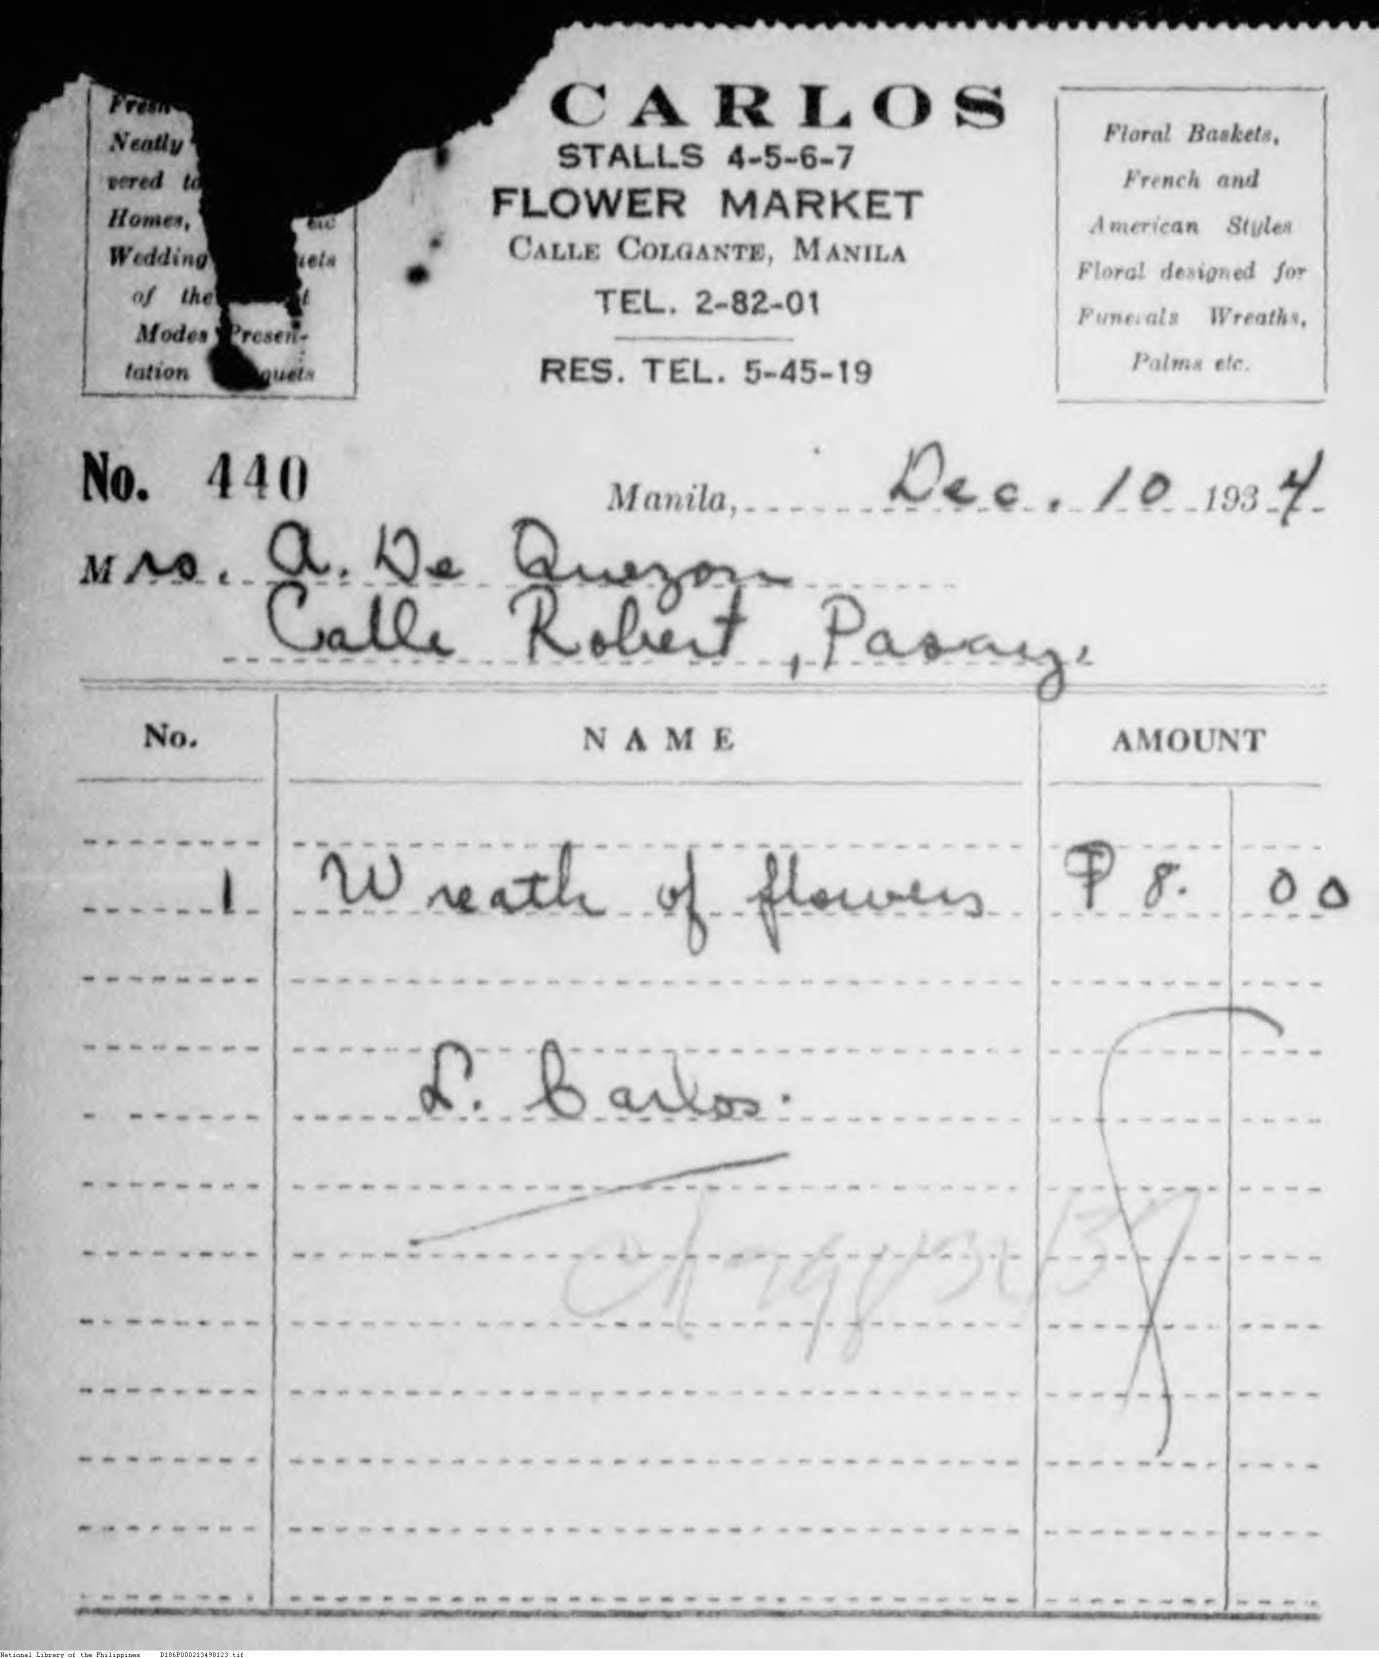 CARLOS
STALLS 4-5-6-7
FLOWER MARKET
CALLE COLGANTE, MANILA
TEL. 2-82-01
RES. TEL. 5-45-19
Fresh
Neatly
vered to
Homes, etc
Wedding
of the
Modes Presen-
tation
Floral Baskets,
French and
American Styles
Floral designed for
Funerals Wreaths,
Palms etc.
No. 440
Manila, Dec. 10 1934
Mrs. A. De Quezon
Calle Robert, Pasay.
No. NAME AMOUNT
1 Wreath of flowers ₱ 8. 00
L. Carlos.
National Library of the Philippines D186P000213498123.tif